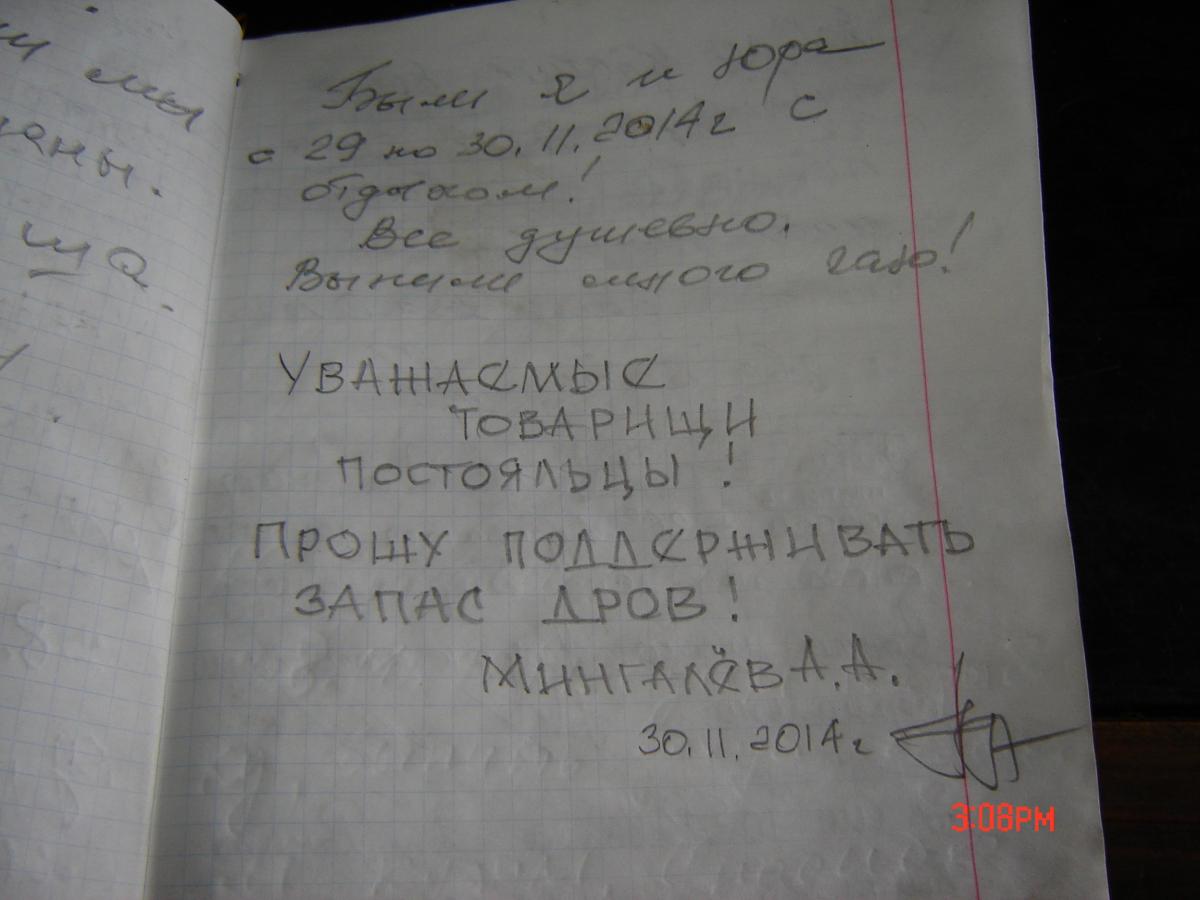 мы
аны.
ща.
Были я и Юра
с 29 по 30.11.2014г с
отдыхом!
Все душевно.
Выпили много чаю!
УВАЖАЕМЫЕ
ТОВАРИЩИ
ПОСТОЯЛЬЦЫ!
ПРОШУ ПОДДЕРЖИВАТЬ
ЗАПАС ДРОВ!
МИНГАЛЁВ А.А.
30.11.2014г
3:08PM